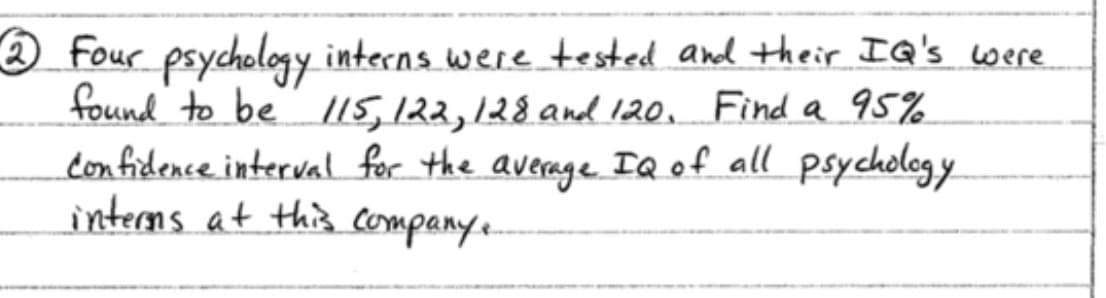 ② Four psychology interns were tested and their IQ's were
found to be 115, 122, 128 and 120. Find a 95%
confidence interval for the average IQ of all psychology
interns at this company.